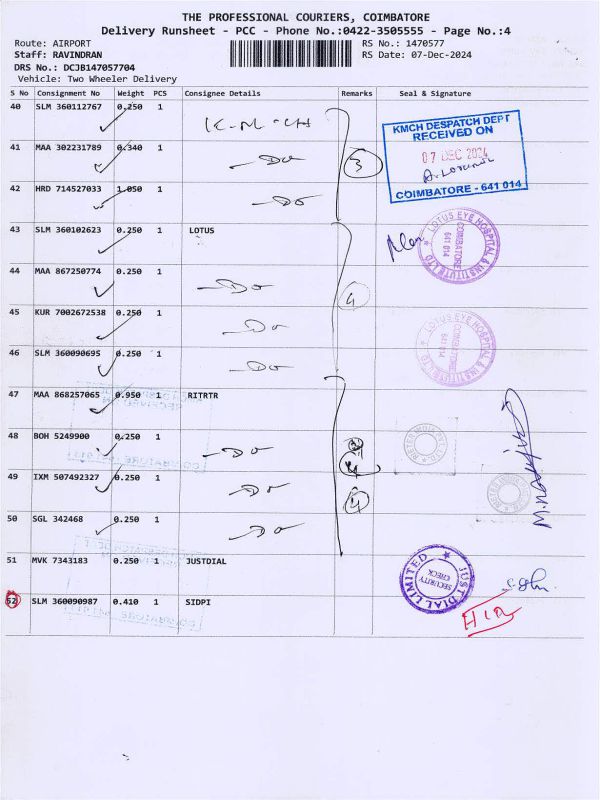 THE PROFESSIONAL COURIERS, COIMBATORE
Delivery Runsheet - PCC - Phone No.:0422-3505555 - Page No.:4
Route: AIRPORT
RS No.: 1470577
Staff: RAVINDRAN
RS Date: 07-Dec-2024
DRS No.: DCJB147057704
Vehicle: Two Wheeler Delivery
S No Consignment No Weight PCS Consignee Details Remarks Seal & Signature
40 SLM 360112767 0.250 1 K-M-CH
41 MAA 302231789 0.340 1 -Do
42 HRD 714527033 1.050 1 -Do
3
KMCH DESPATCH DEPT
RECEIVED ON
07 DEC 2024
COIMBATORE - 641 014
43 SLM 360102623 0.250 1 LOTUS
44 MAA 867250774 0.250 1 -Do
45 KUR 7002672538 0.250 1 -Do
46 SLM 360090695 0.250 1 -Do
4
LOTUS EYE HOSPITAL & INSTITUTE LTD
COIMBATORE
641 014
LOTUS EYE HOSPITAL & INSTITUTE LTD
COIMBATORE
641 014
47 MAA 868257065 0.950 1 RITRTR
48 BOH 5249900 0.250 1 -Do
49 IXM 507492327 0.250 1 -Do
50 SGL 342468 0.250 1 -Do
4
51 MVK 7343183 0.250 1 JUSTDIAL
JUST DIAL LIMITED
SECURITY
CHECK
52 SLM 360090987 0.410 1 SIDPI